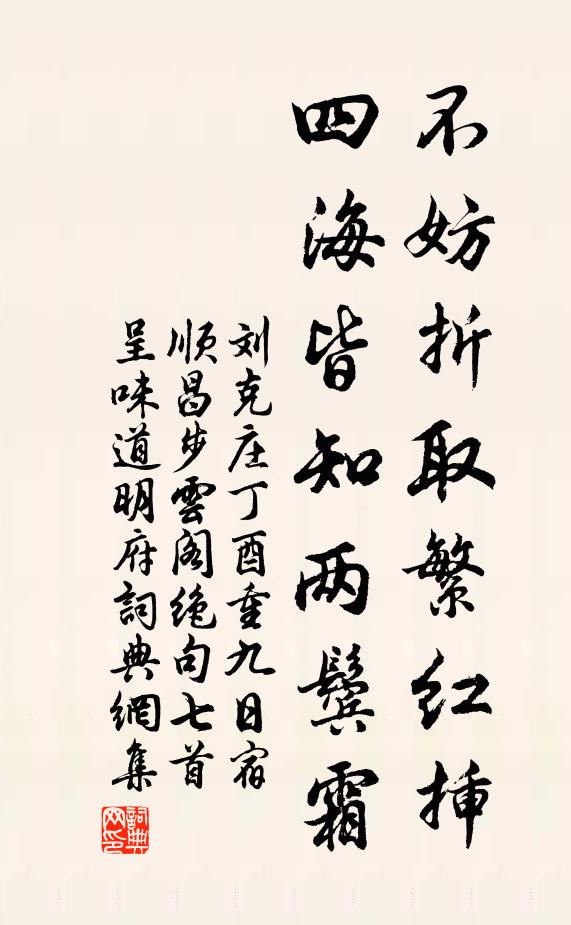 不妨折取繁红挿
四海皆知两鬓霜
刘克庄丁酉重九日宿
顺昌步雲阁绝句七首
呈味道明府詞典網集
詞典
网印